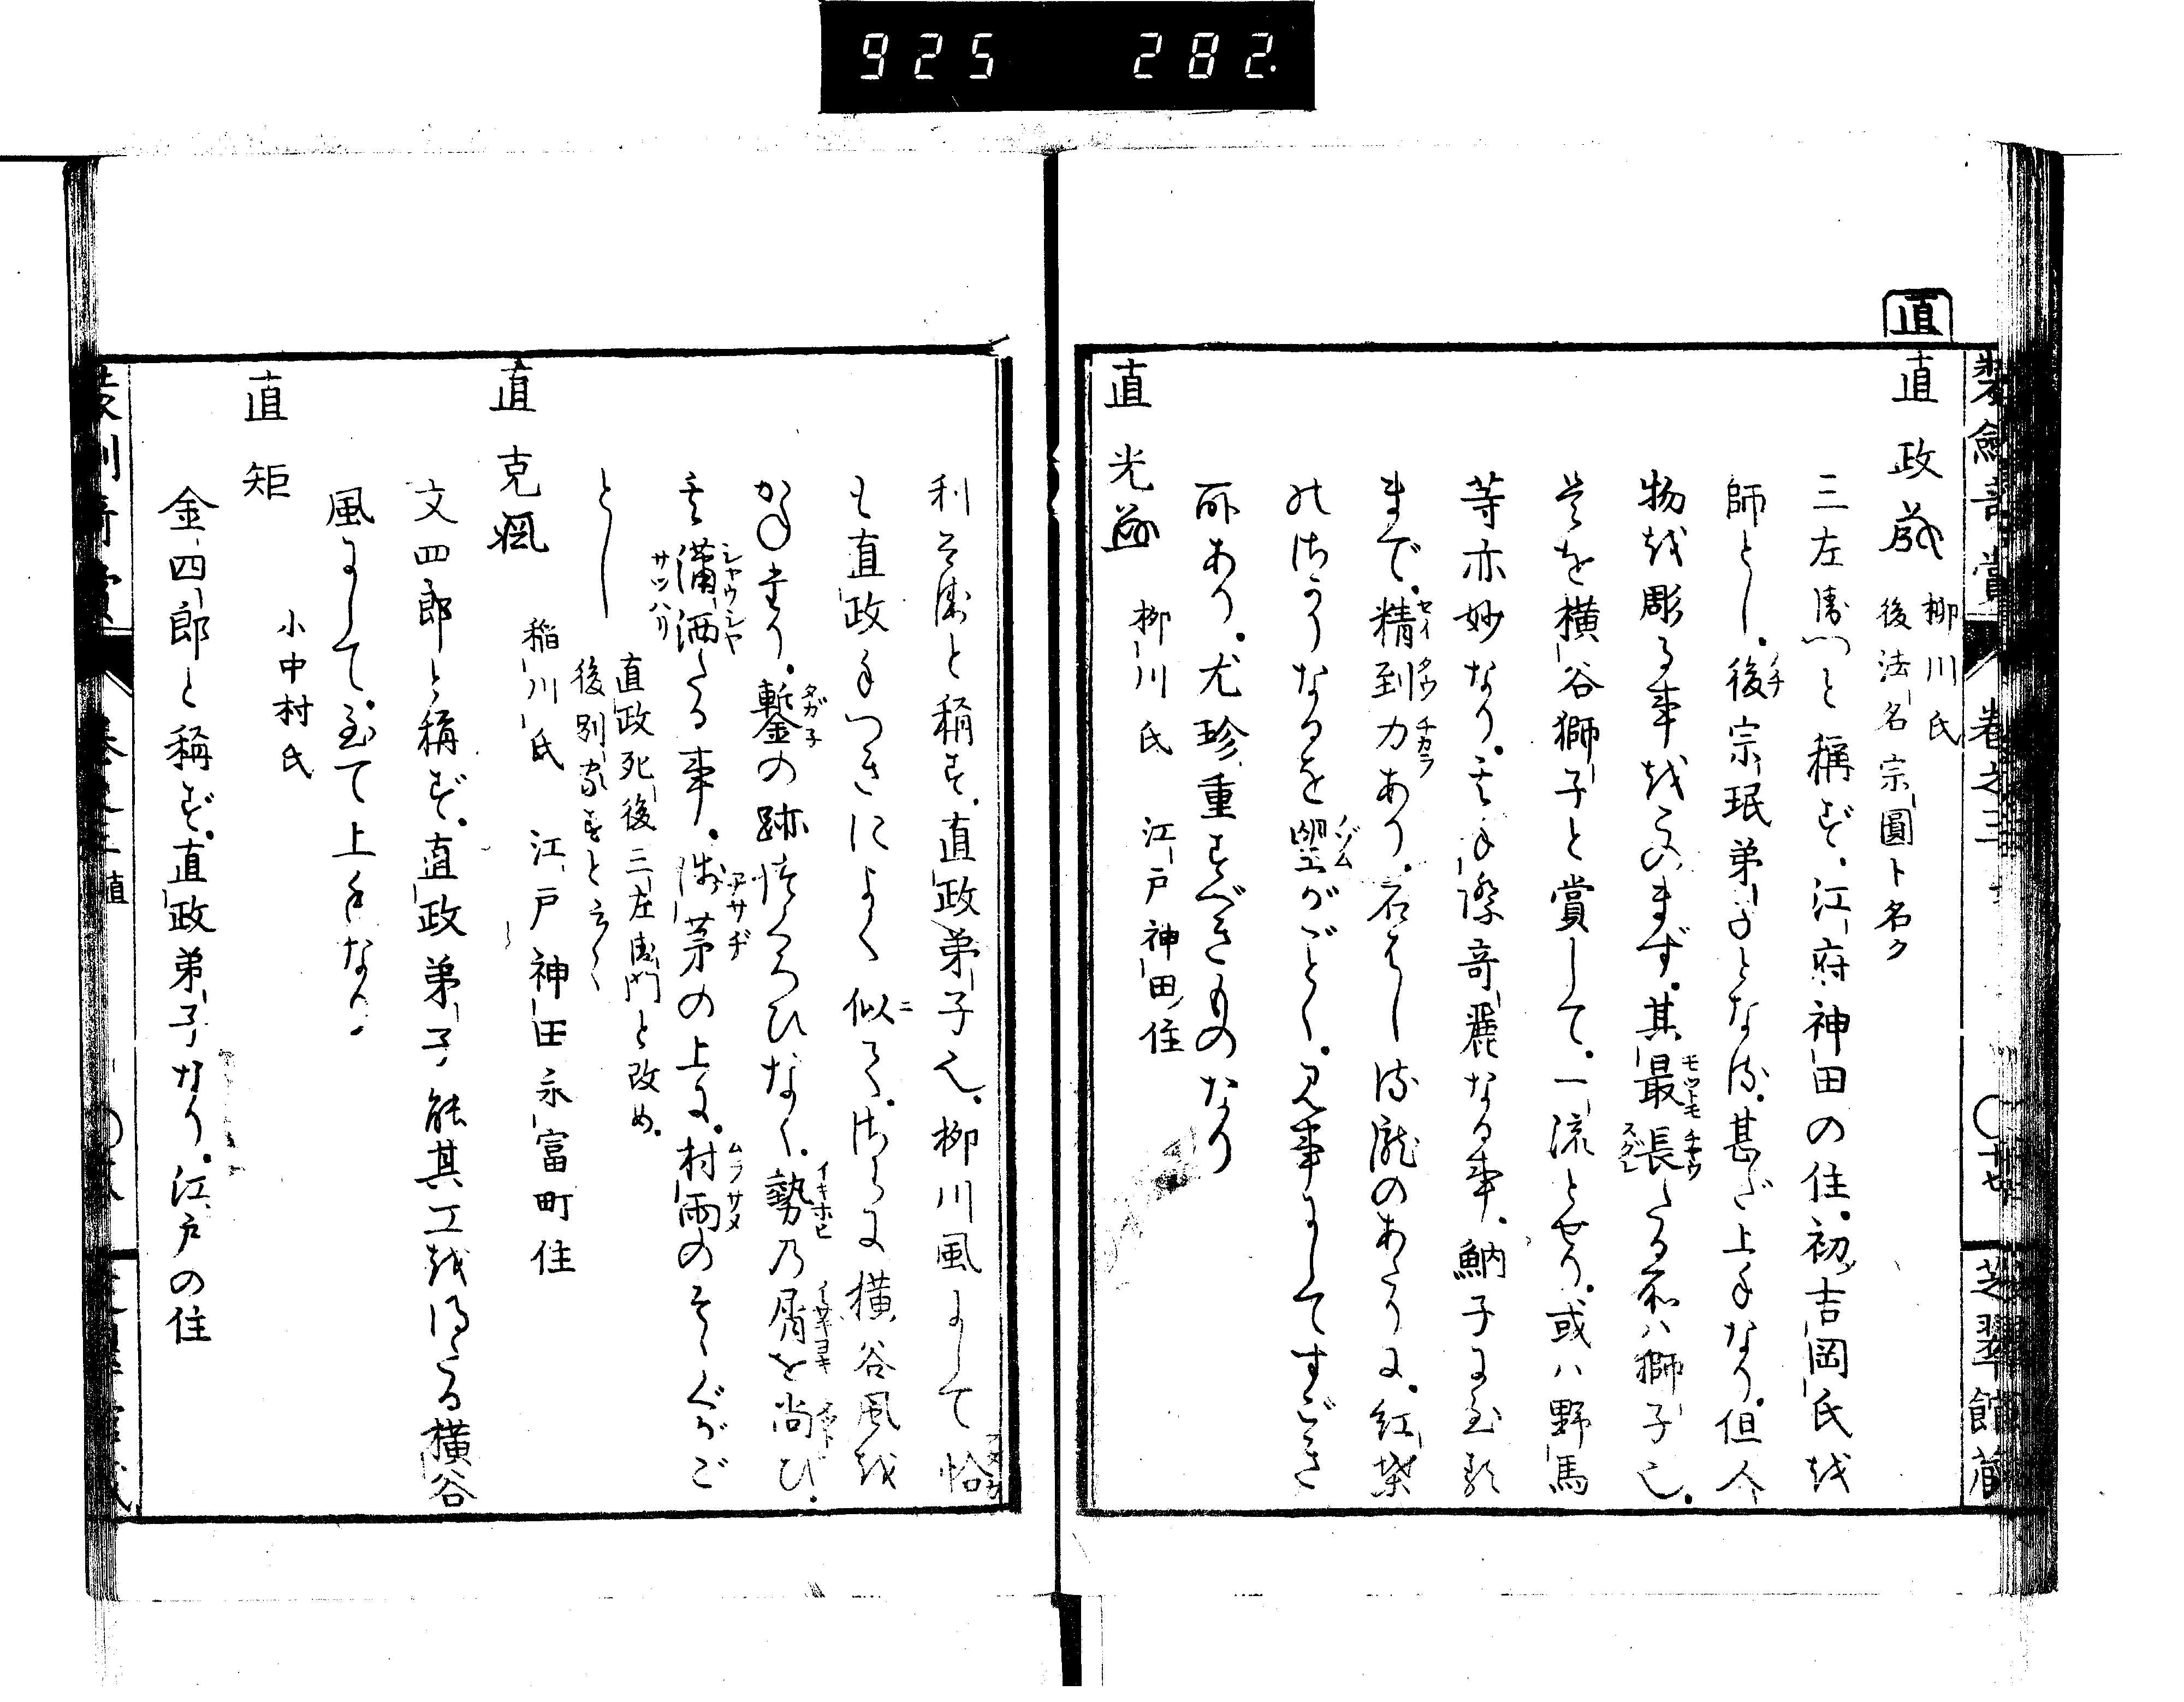 925 282.
装劔奇賞 巻之三 ○十七 芝翠館蔵
直
直政 柳川氏
後法名宗圓ト名ク
三左衛門と称ず。江府神田の住。初吉岡氏越
師とし。後宗珉弟子となる。甚だ上手なり。但人
物越彫る事越このまず。其最長たる所ハ獅子也。
是を横谷獅子と賞して。一流とせり。或ハ野馬
等亦妙なり。其手際奇麗なる事。魶子に至る
まで。精到力あり。石ばし流瀧のあたりに。紅葉
のちりうなるを望がごとく。見事にしてすごき
所あり。尤珍重すべきものなり
直光 柳川氏 江戸神田住
利兵衛と称す。直政弟子也。柳川風にして恰
も直政手つきによく似て。さらに横谷風越
かねたり。鏨の跡つくろひなく。勢乃屑を尚び。
其瀟洒たる事。浅茅の上に。村雨のそゝぐがご
とし 直政死後三左衛門と改め。
後別家すと云々
直克 稲川氏 江戸神田永富町住
文四郎と称ず。直政弟子能其工越得たる横谷
風にして。至て上手なり。
直矩 小中村氏
金四郎と称ず。直政弟子なり。江戸の住